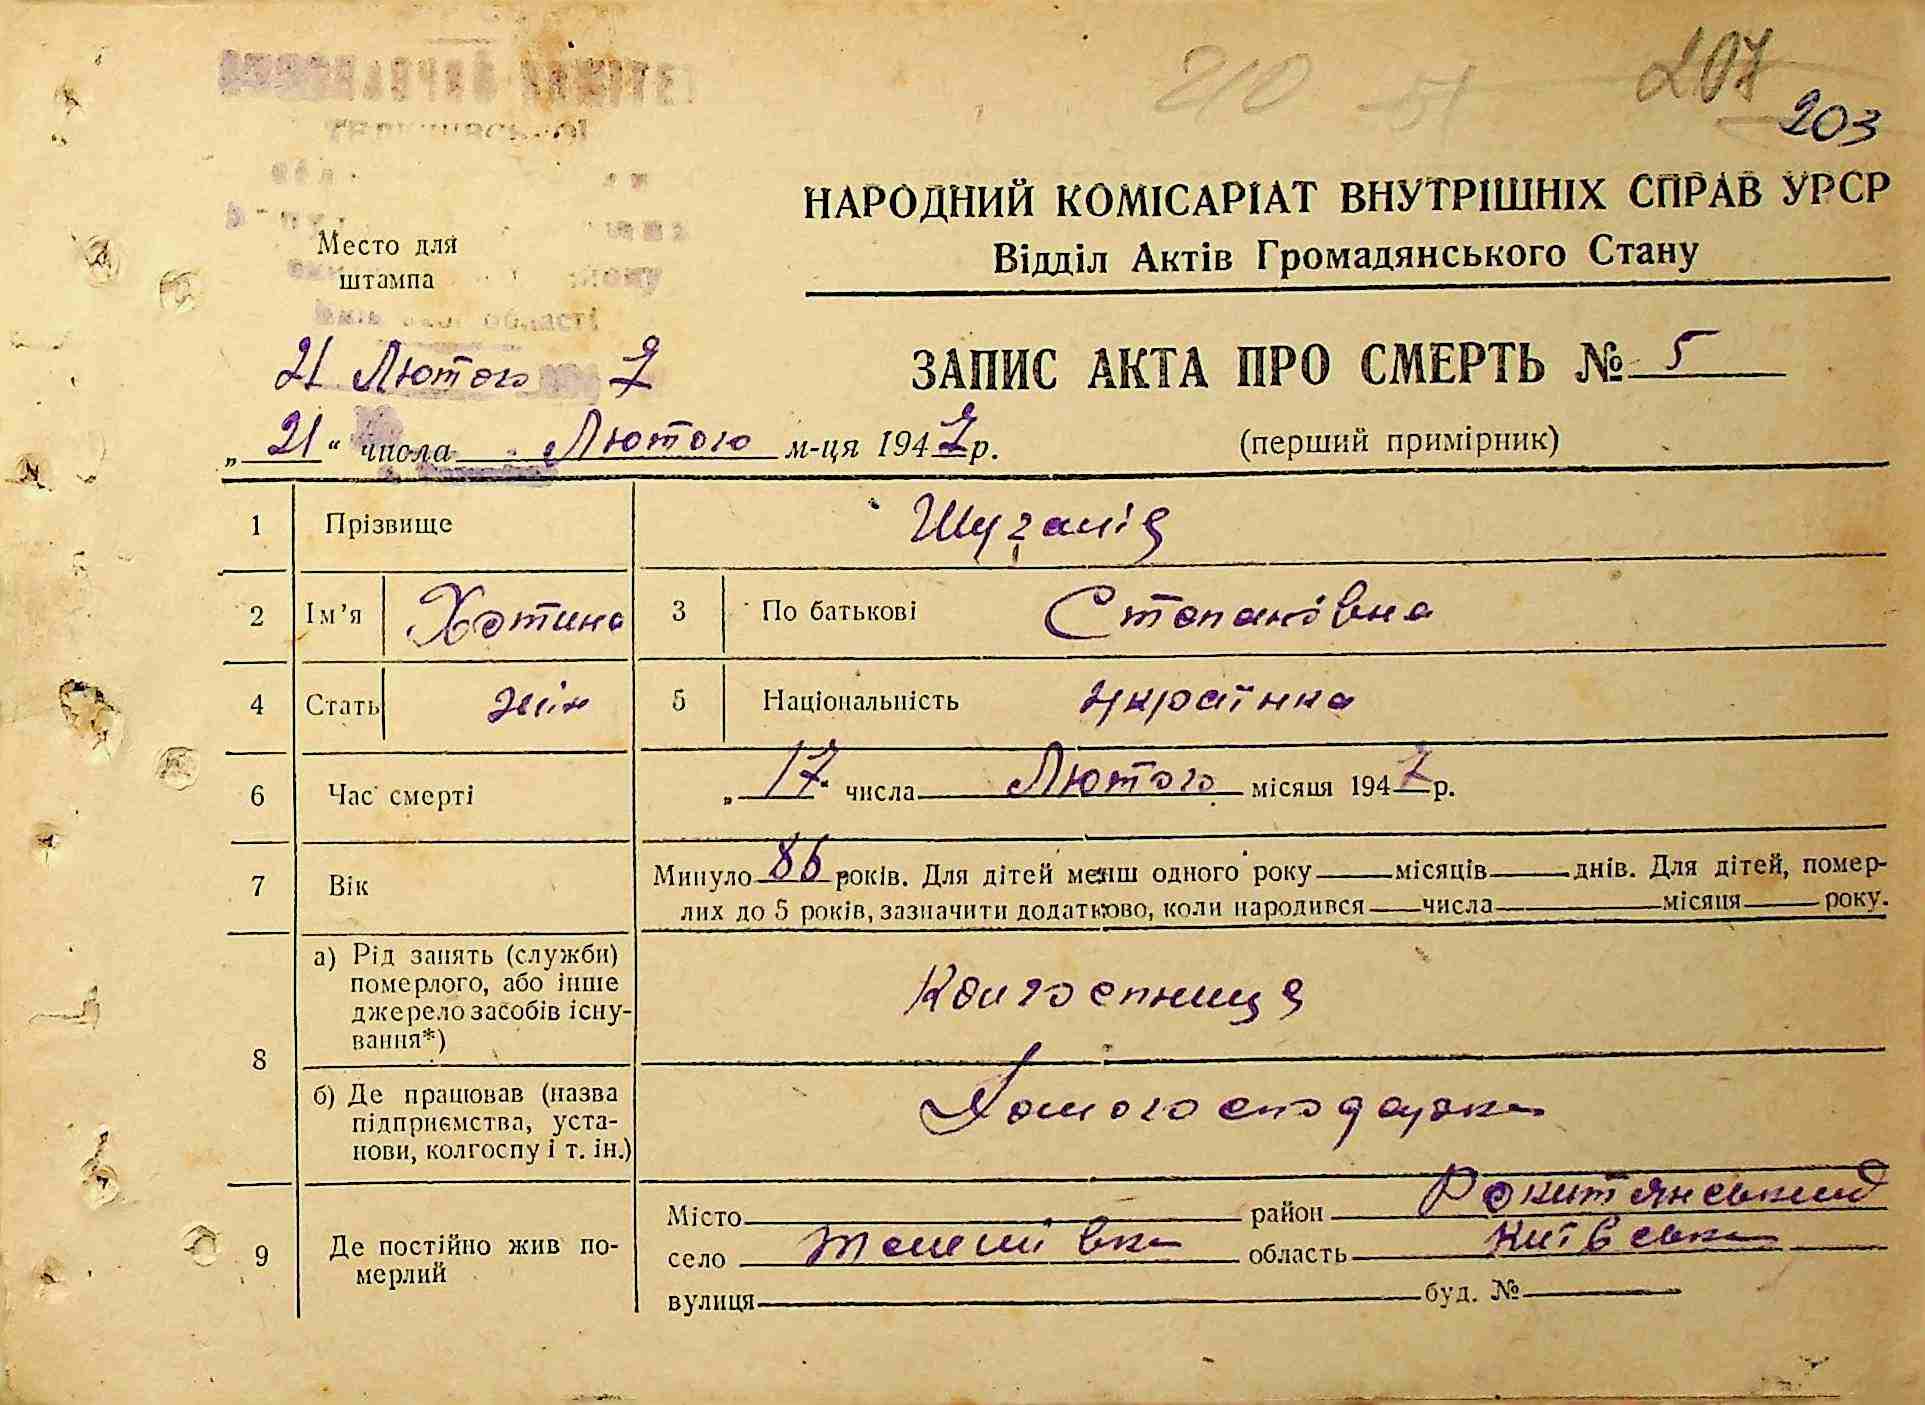 210 51 207
203
НАРОДНИЙ КОМІСАРІАТ ВНУТРІШНІХ СПРАВ УРСР
Відділ Актів Громадянського Стану
Место для
штампа
області
21 Лютого 7
ЗАПИС АКТА ПРО СМЕРТЬ № 5
„ 21 “ числа Лютого м-ця 1947 р.
(перший примірник)
1 Прізвище
2 Ім’я Хотина 3 По батькові Степановна
4 Стать жін 5 Національність українка
6 Час смерті „ 17 “ числа Лютого місяця 1947 р.
7 Вік Минуло 86 років. Для дітей менш одного року місяців днів. Для дітей, помер-
лих до 5 років, зазначити додатково, коли народився числа місяця року.
8 а) Рід занять (служби)
померлого, або інше
джерело засобів існу-
вання*)
Колгоспниця
б) Де працював (назва
підприємства, уста-
нови, колгоспу і т. ін.)
Домогосподарка
9 Де постійно жив по-
мерлий
Місто район Рокитянський
село область Київська
вулиця буд. №